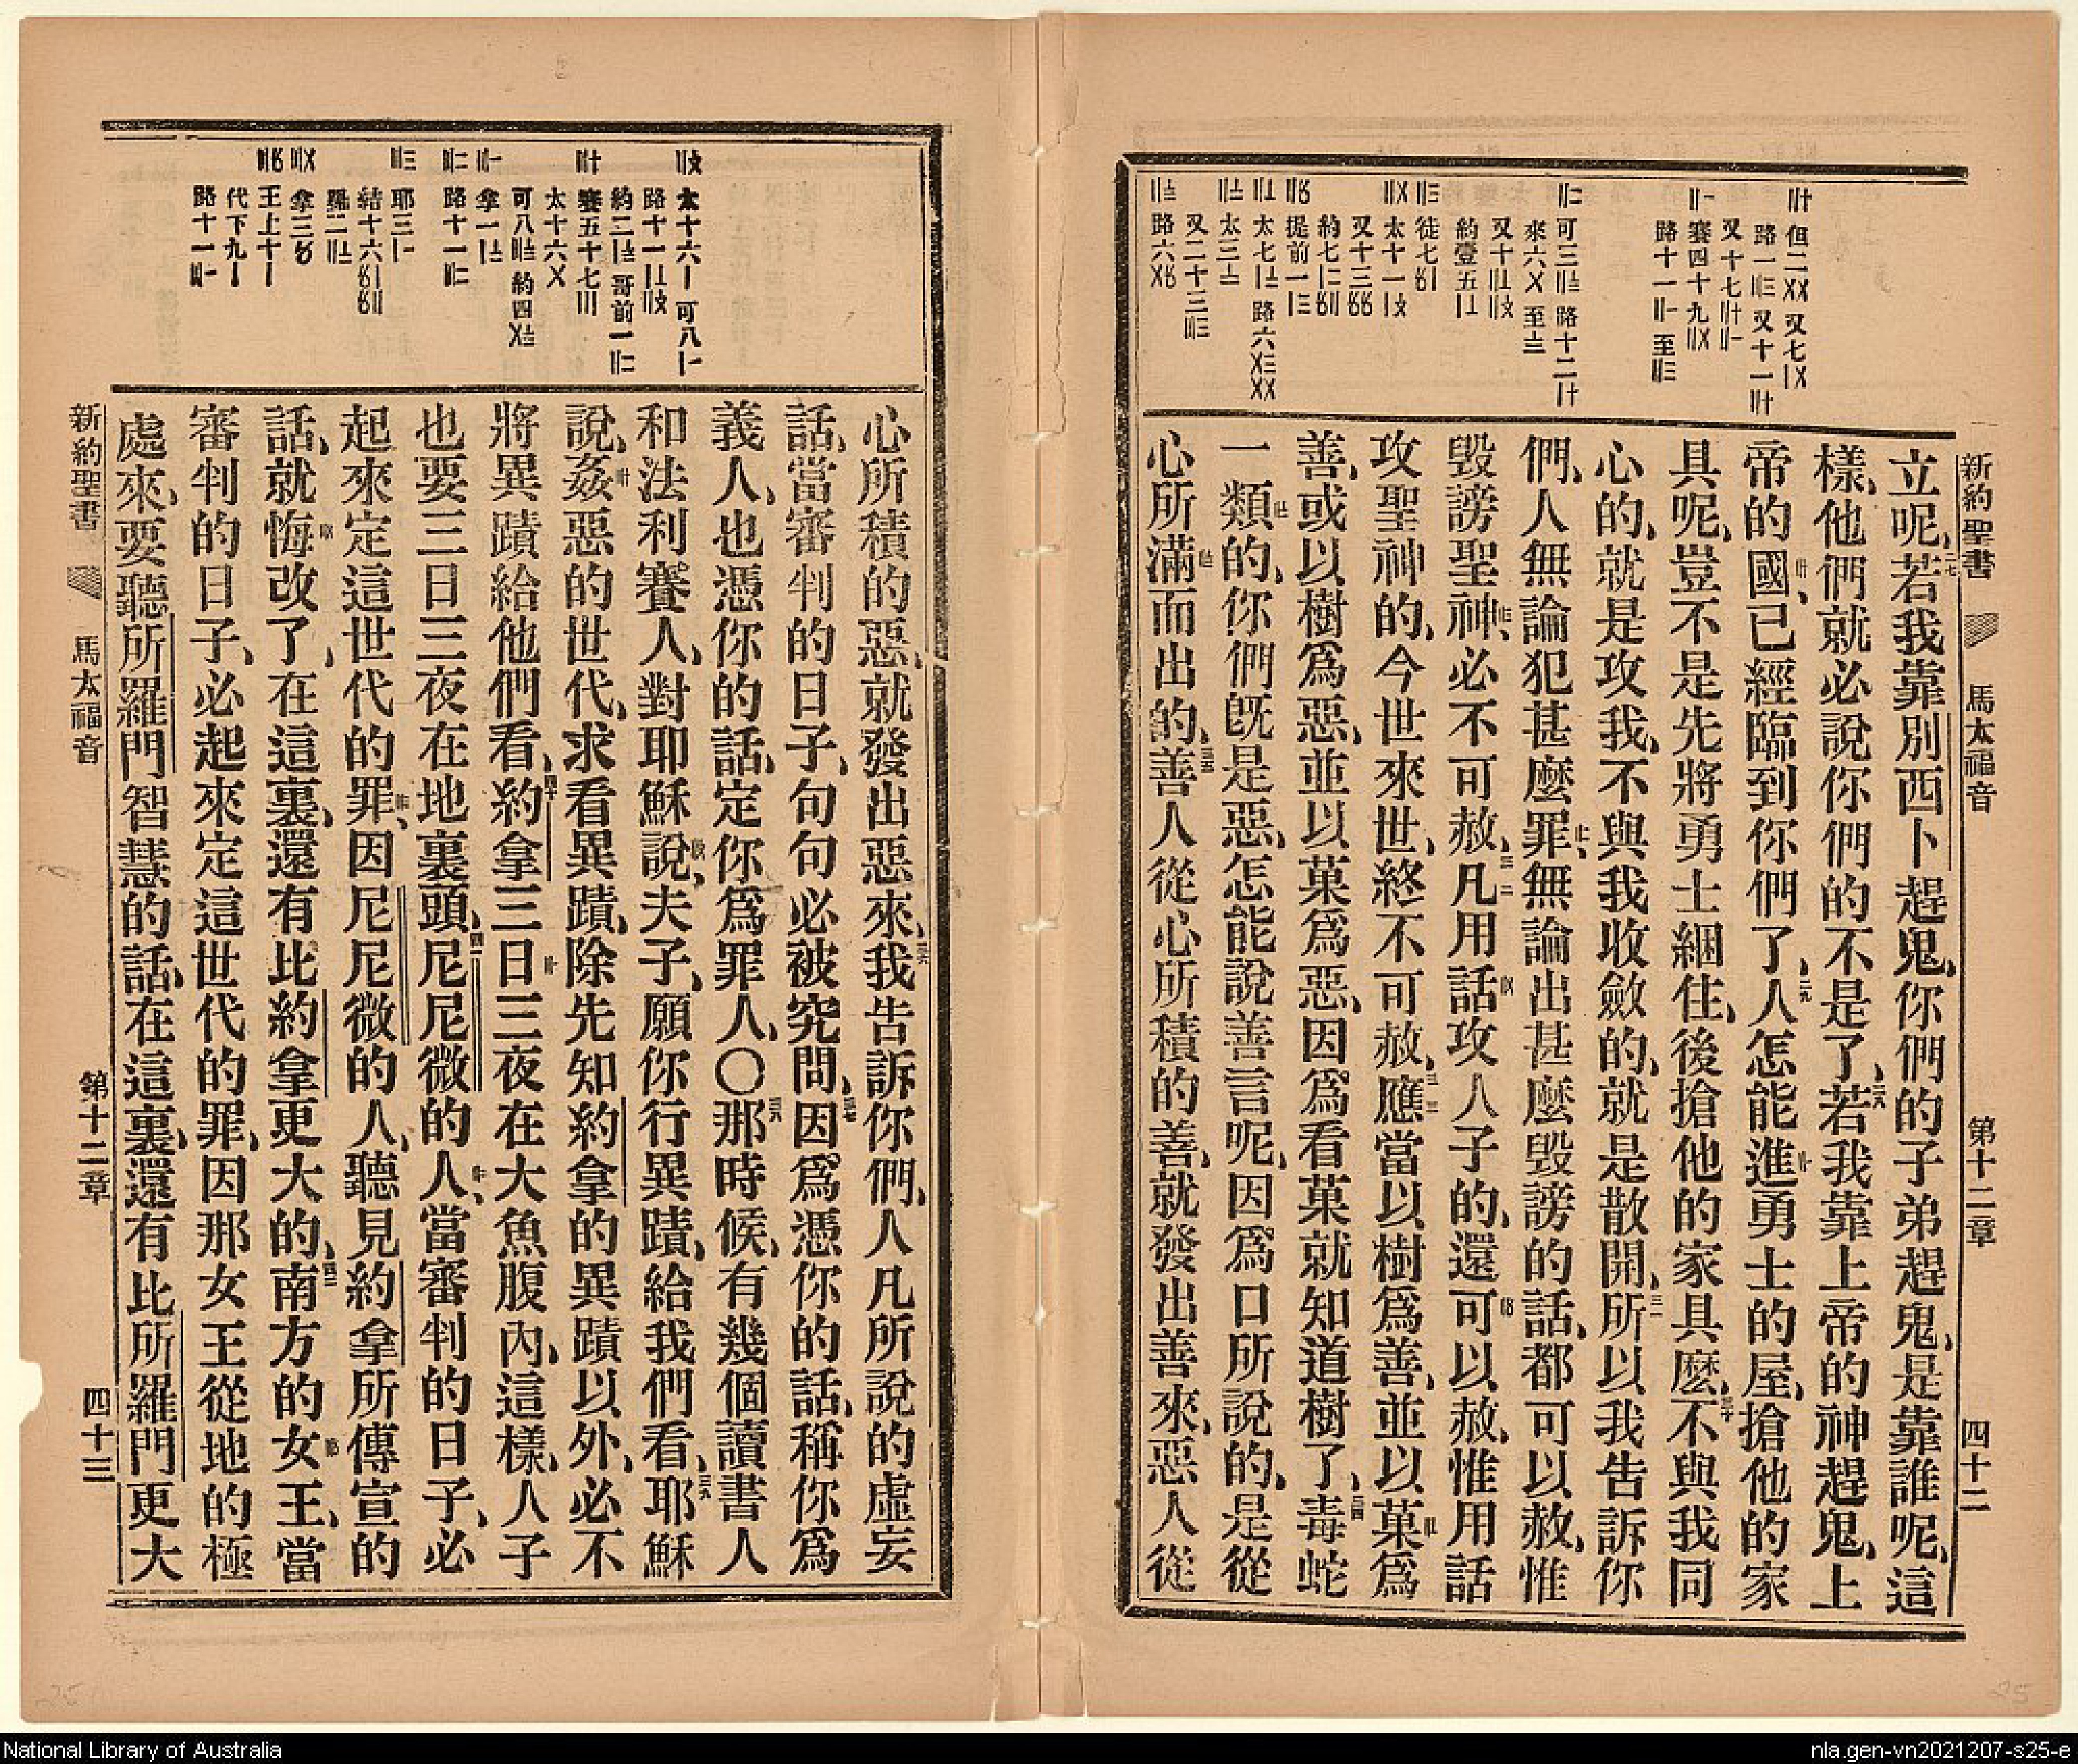 新約聖書 馬太福音 第十二章 四十二
立呢、二七若我靠別西卜趕鬼、你們的子弟趕鬼、是靠誰呢、這
樣、他們就必說你們的不是了、二八若我靠上帝的神趕鬼、上
帝的國、已經臨到你們了、二九人怎能進勇士的屋、搶他的家
具呢、豈不是先將勇士綑住、後搶他的家具麽、三十不與我同
心的、就是攻我、不與我收斂的、就是散開、三一所以我告訴你
們、人無論犯甚麽罪、無論出甚麽毀謗的話、都可以赦、惟
毀謗聖神、必不可赦、三二凡用話攻人子的、還可以赦、惟用話
攻聖神的、今世來世、終不可赦、三三應當以樹爲善、並以菓爲
善、或以樹爲惡、並以菓爲惡、因爲看菓就知道樹了、三四毒蛇
一類的、你們旣是惡、怎能說善言呢、因爲口所說的、是從
心所滿而出的、三五善人從心所積的善、就發出善來、惡人從
心所積的惡、就發出惡來、三六我告訴你們、人凡所說的虛妄
話、當審判的日子、句句必被究問、三七因爲憑你的話、稱你爲
義人、也憑你的話、定你爲罪人、〇三八那時候、有幾個讀書人
和法利賽人、對耶穌說、夫子、願你行異蹟、給我們看、三九耶穌
說、姦惡的世代、求看異蹟、除先知約拿的異蹟以外、必不
將異蹟給他們看、四十約拿三日三夜在大魚腹內、這樣、人子
也要三日三夜在地裏頭、四一尼尼微的人、當審判的日子、必
起來定這世代的罪、因尼尼微的人、聽見約拿所傳宣的
話、就悔改了、在這裏、還有比約拿更大的、四二南方的女王、當
審判的日子、必起來定這世代的罪、因那女王從地的極
處來、要聽所羅門智慧的話、在這裏、還有比所羅門更大
新約聖書 馬太福音 第十二章 四十三
National Library of Australia
nla.gen-vn2021207-s25-e